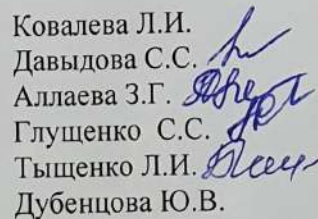 Ковалева Л.И.
Давыдова С.С.
Аллаева З.Г.
Глущенко С.С.
Тыщенко Л.И.
Дубенцова Ю.В.